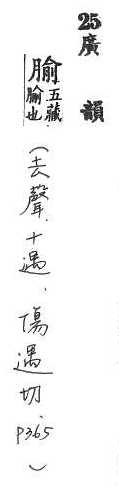 25廣韻
腧五藏腧也（去聲．十遇．傷遇切．P365）